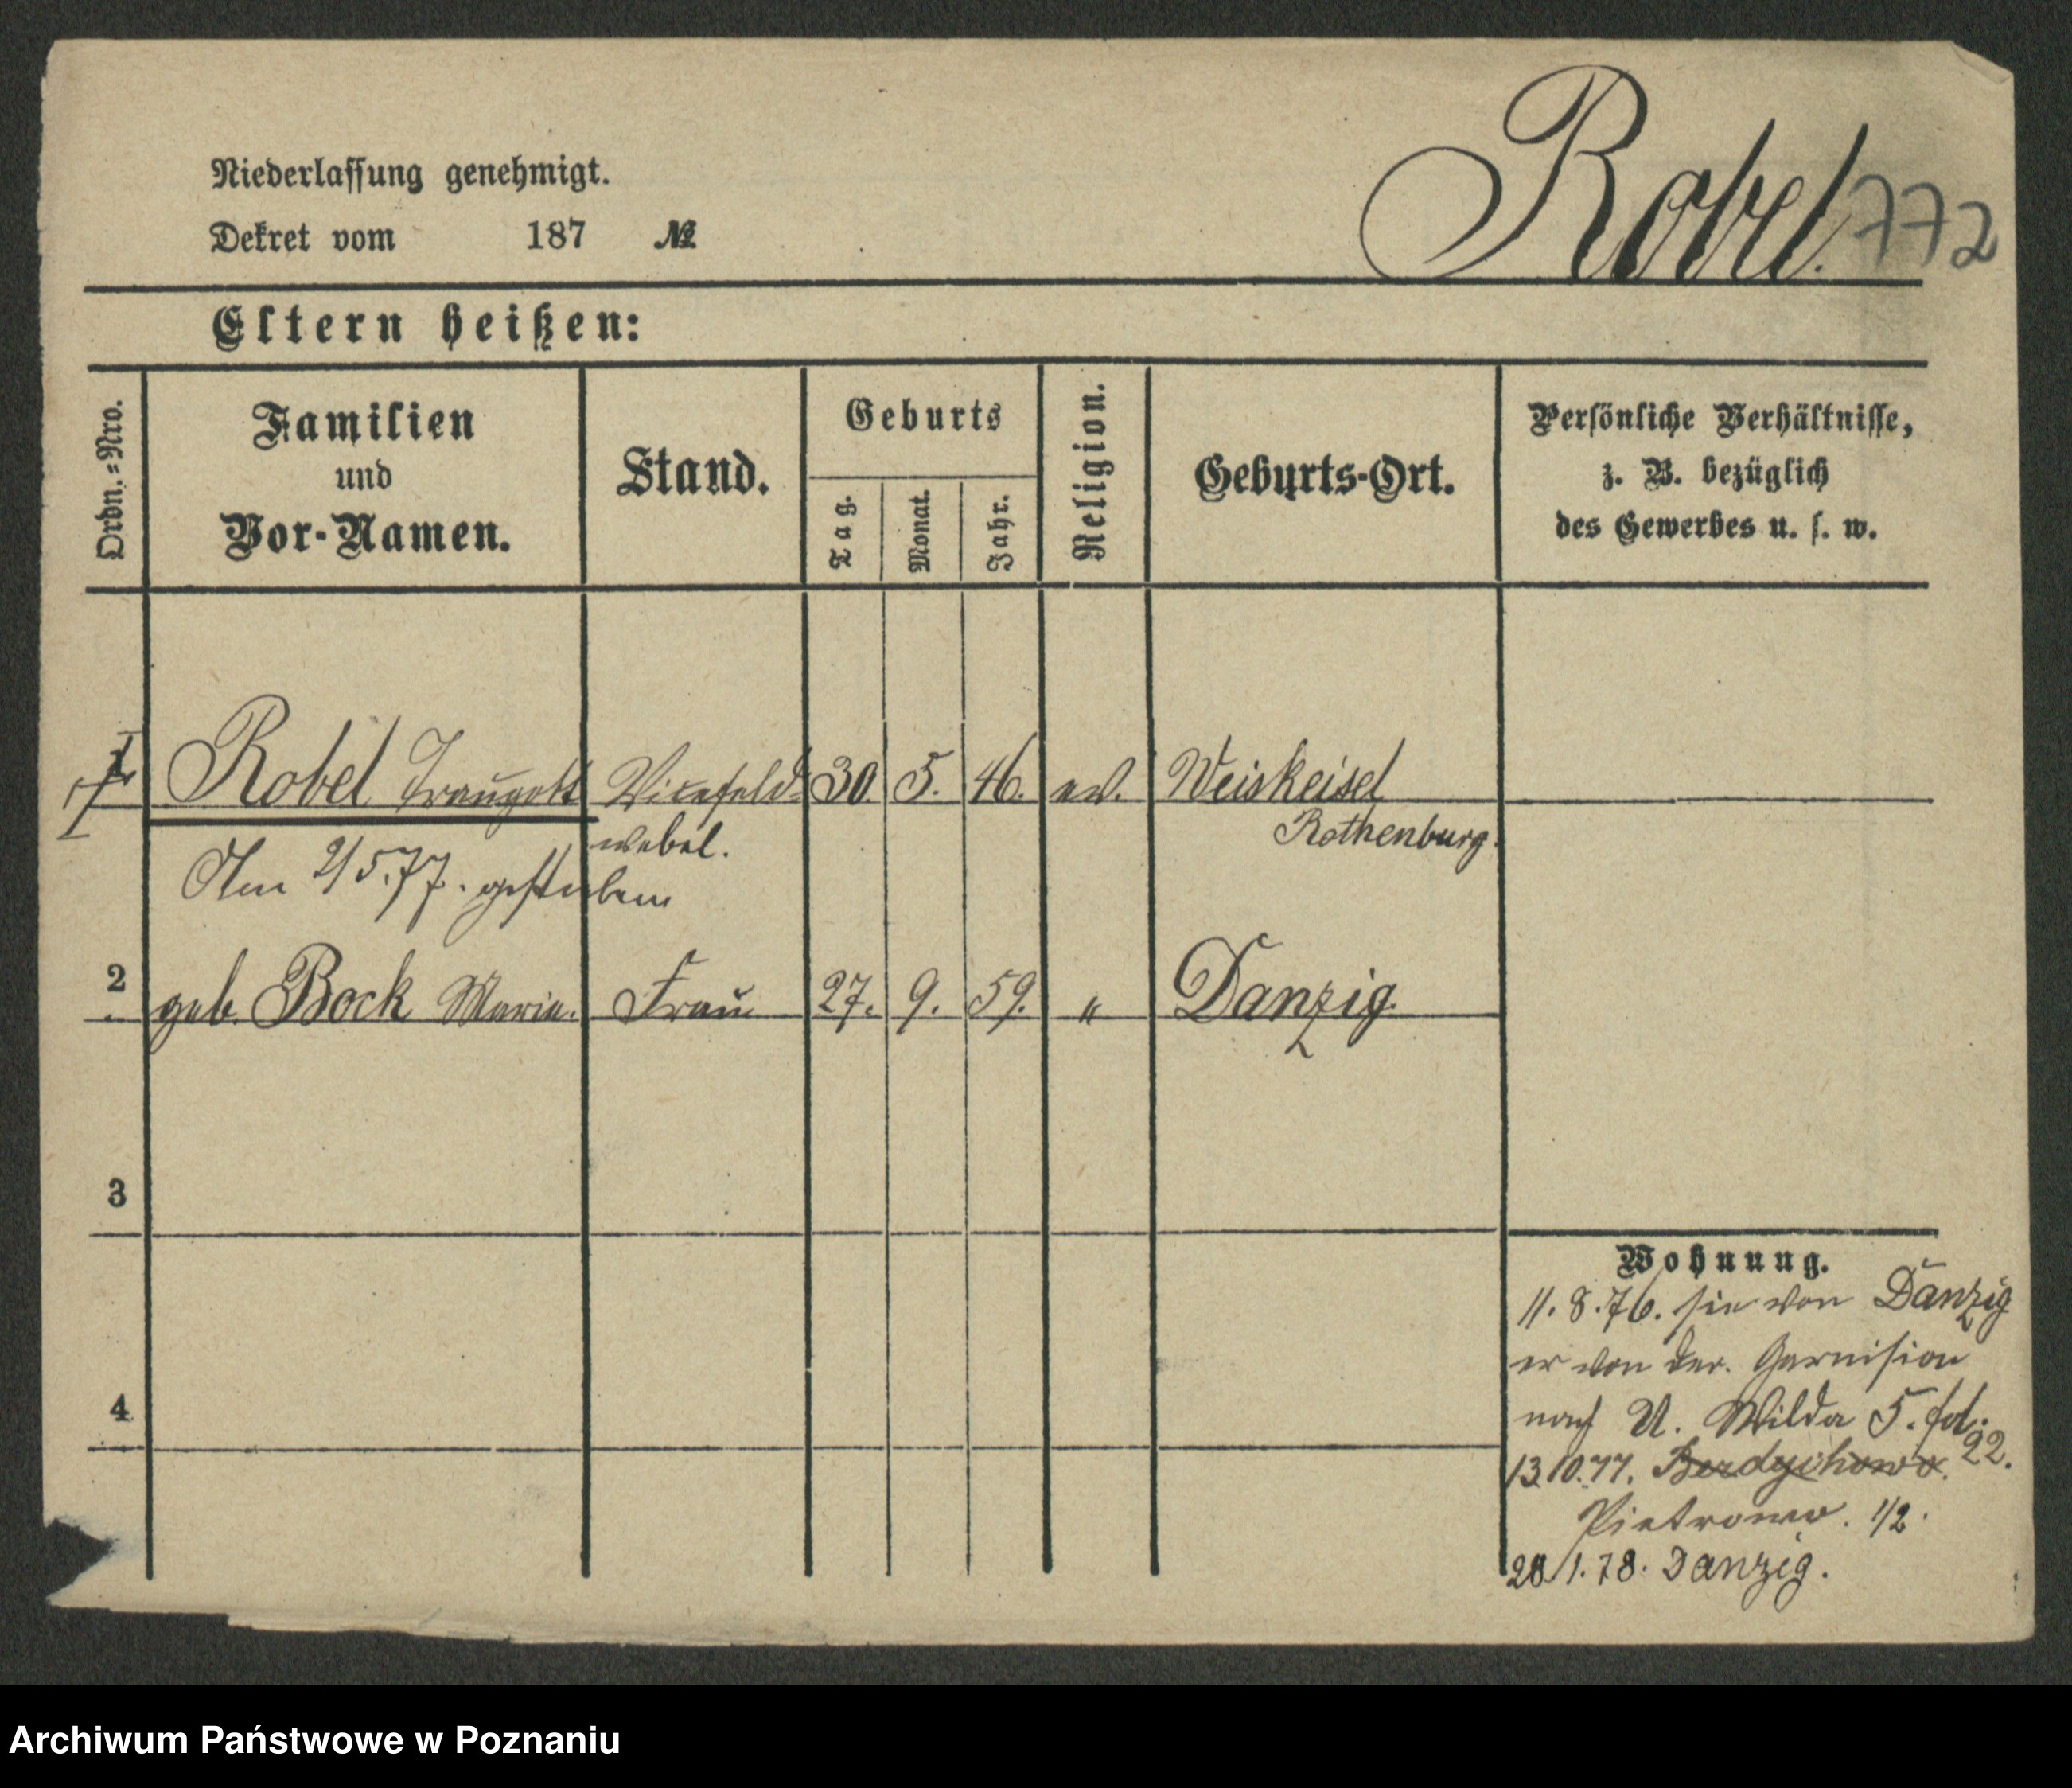 Niederlassung genehmigt.
Robel. 772
Dekret vom 187 №
Eltern heißen:
Ordn.=Nro.
Familien
und
Vor-Namen.
Stand.
Geburts
Tag.
Monat.
Jahr.
Religion.
Geburts-Ort.
Persönliche Verhältnisse,
z. B. bezüglich
des Gewerbes u. s. w.
Robel Traugott Vicefeld- 30. 5. 46. ev. Weiskeisel
webel. Rothenburg.
Am 2/5.77. gestorben
2 geb. Bock Marie. Frau 27. 9. 59. " Danzig.
3
4
Wohnung.
11.8.76. sie von Danzig
er von der. Garnision
nach U. Wilda 5. fol. 22.
13.10.77. Berdychowo.
Pietrowo. 1/2.
28/1.78. Danzig.
Archiwum Państwowe w Poznaniu